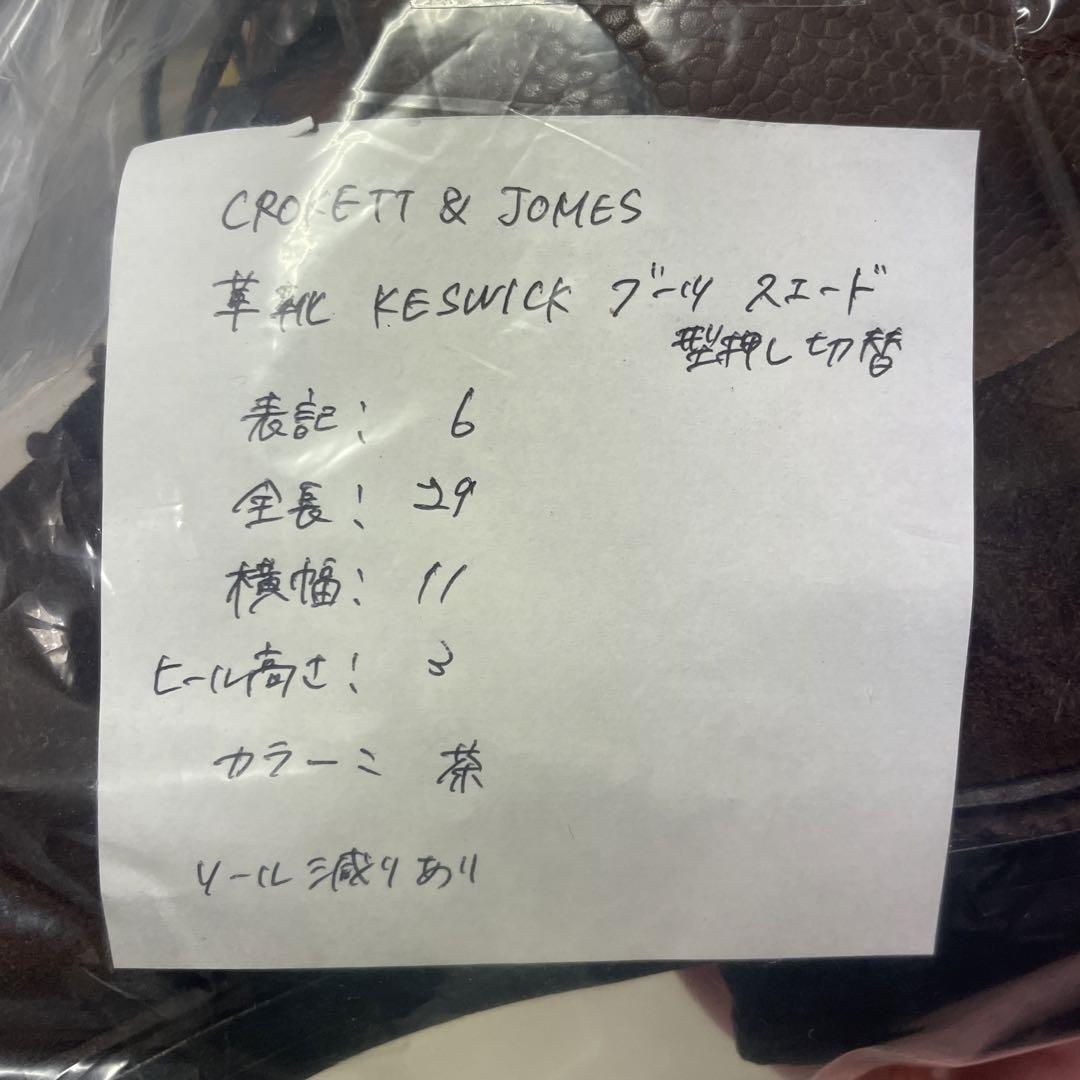 CROKETT & JOMES
革靴 KESWICK ブーツ スエード
型押し切替
表記: 6
全長: 29
横幅: 11
ヒール高さ: 3
カラー: 茶
ソール減りあり